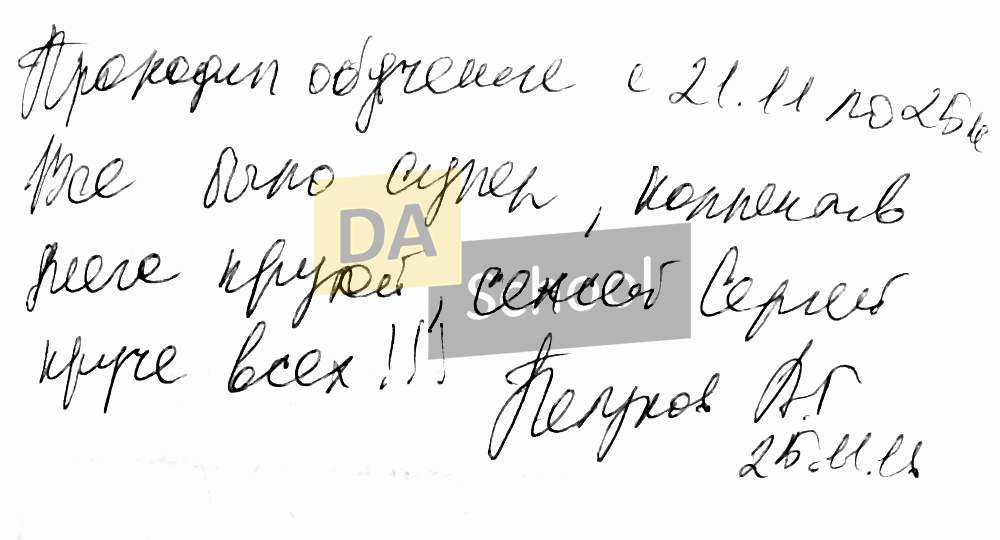 Проходил обучение с 21.11 по 25.11
Все было супер, коллектив
мега крутой, сенсей Сергей
круче всех!!!
DA
School
А.Г
25.11.18